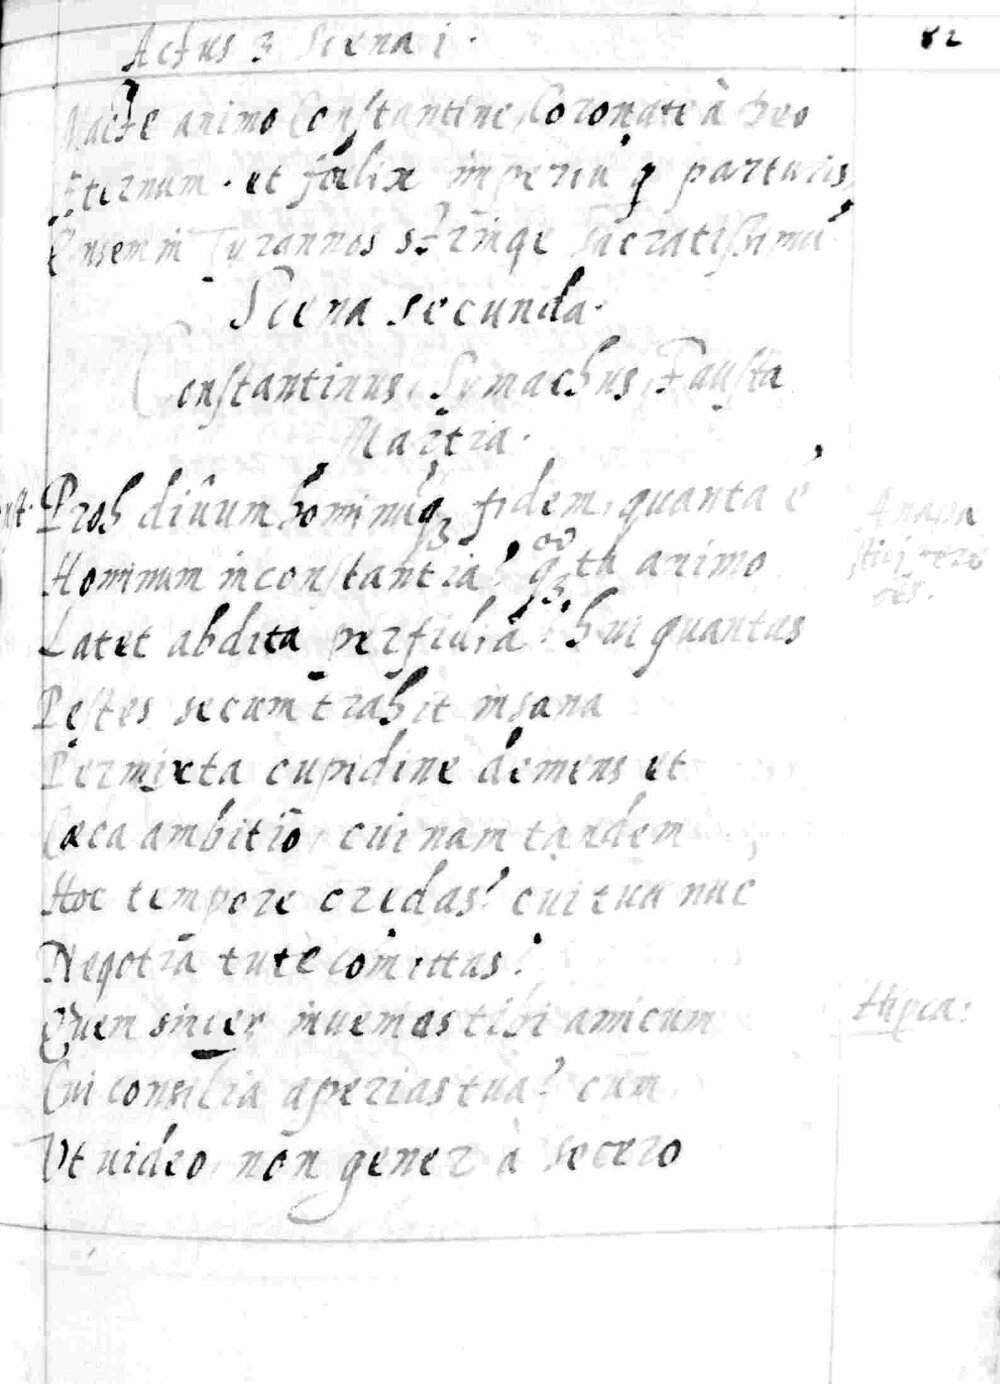 Actus 3 Sciena i.
82
Macte animo Constantine, Coronate à Deo
Æternum. et fœlix imperiū q parturis,
Ensem in Tyrannos strinqe sacratissimū
Sciena secunda.
Constantinus, Symachus, Fausta
Martia.
Proh diûum hominūq3 fidem, quanta è
Hominum inconstantia? tu animo
Latet abdita perfidia? hui quantas
Pestes secum trahit insana
Permixta cupidine demens et
Cæca ambitio, cuinam tandem
Hoc tempore credas? cui tua nūc
Negotia tute comittas?
Quem sincer inuemas tibi amicum
Cui consilia aperias tua? cum
Vt uideo, non gener à socero